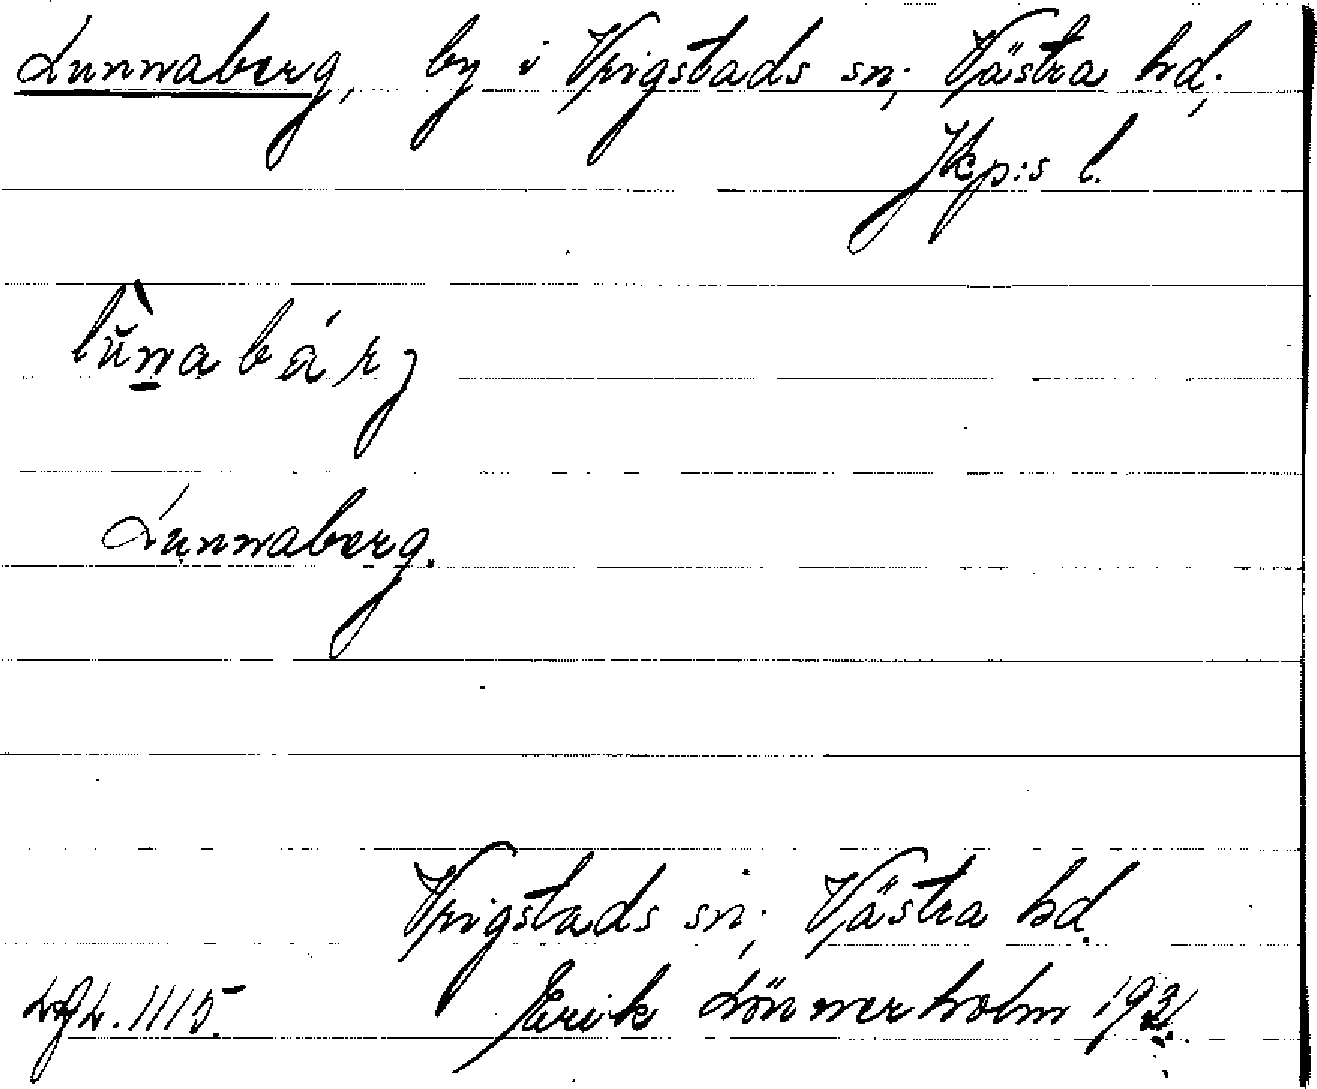 Lunnaberg, by i Vrigstads sn; Västra hd;
Jkp:s l.
lŭ̀n̲abárg
Lunnaberg.
Vrigstads sn; Västra hd.
Erik Lönnerholm 192